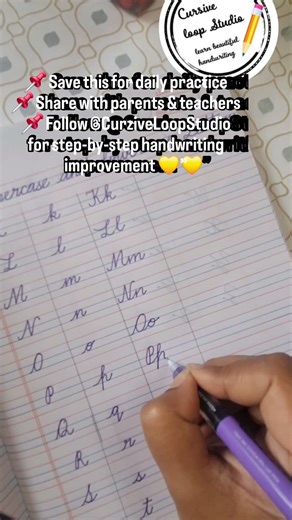 Cursive
loop Studio
learn beautiful
handwriting
📌 Save this for daily practice
📌 Share with parents & teachers
📌 Follow @CurziveLoopStudio
for step-by-step handwriting
improvement 💛 💛
k Kk
L l Ll
M m Mm
N n Nn
O o Oo
P p Pp
Q q
R r
S s
t